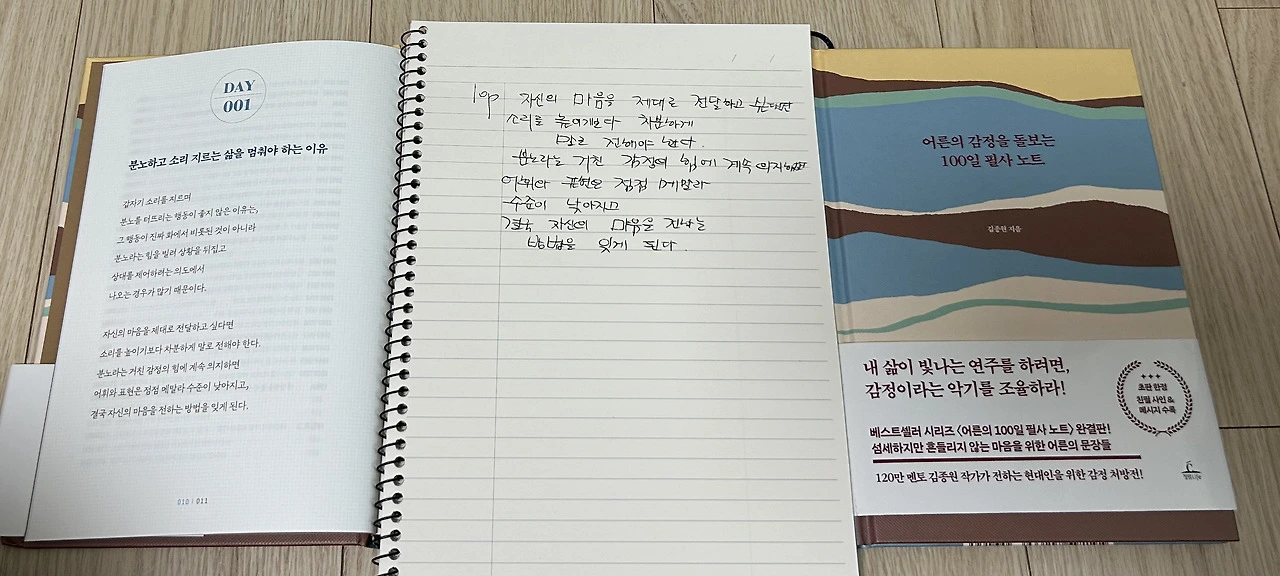 DAY
001
분노하고 소리 지르는 삶을 멈춰야 하는 이유
갑자기 소리를 지르며
분노를 터뜨리는 행동이 좋지 않은 이유는,
그 행동이 진짜 화에서 비롯된 것이 아니라
분노라는 힘을 빌려 상황을 뒤집고
상대를 제어하려는 의도에서
나오는 경우가 많기 때문이다.
자신의 마음을 제대로 전달하고 싶다면
소리를 높이기보다 차분하게 말로 전해야 한다.
분노라는 거친 감정의 힘에 계속 의지하면
어휘와 표현은 점점 메말라 수준이 낮아지고,
결국 자신의 마음을 전하는 방법을 잊게 된다.
010 | 011
/ /
10p 자신의 마음을 제대로 전달하고 싶다면
소리를 높이기보다 차분하게
말로 전해야 한다.
분노라는 거친 감정의 힘에 계속 의지하면
어휘와 표현은 점점 메말라
수준이 낮아지고
결국 자신의 마음을 전하는
방법을 잊게 된다.
어른의 감정을 돌보는
100일 필사 노트
김종원 지음
내 삶이 빛나는 연주를 하려면,
감정이라는 악기를 조율하라!
초판 한정
친필 사인 &
메시지 수록
베스트셀러 시리즈 〈어른의 100일 필사 노트〉 완결판!
섬세하지만 흔들리지 않는 마음을 위한 어른의 문장들
120만 멘토 김종원 작가가 전하는 현대인을 위한 감정 처방전!